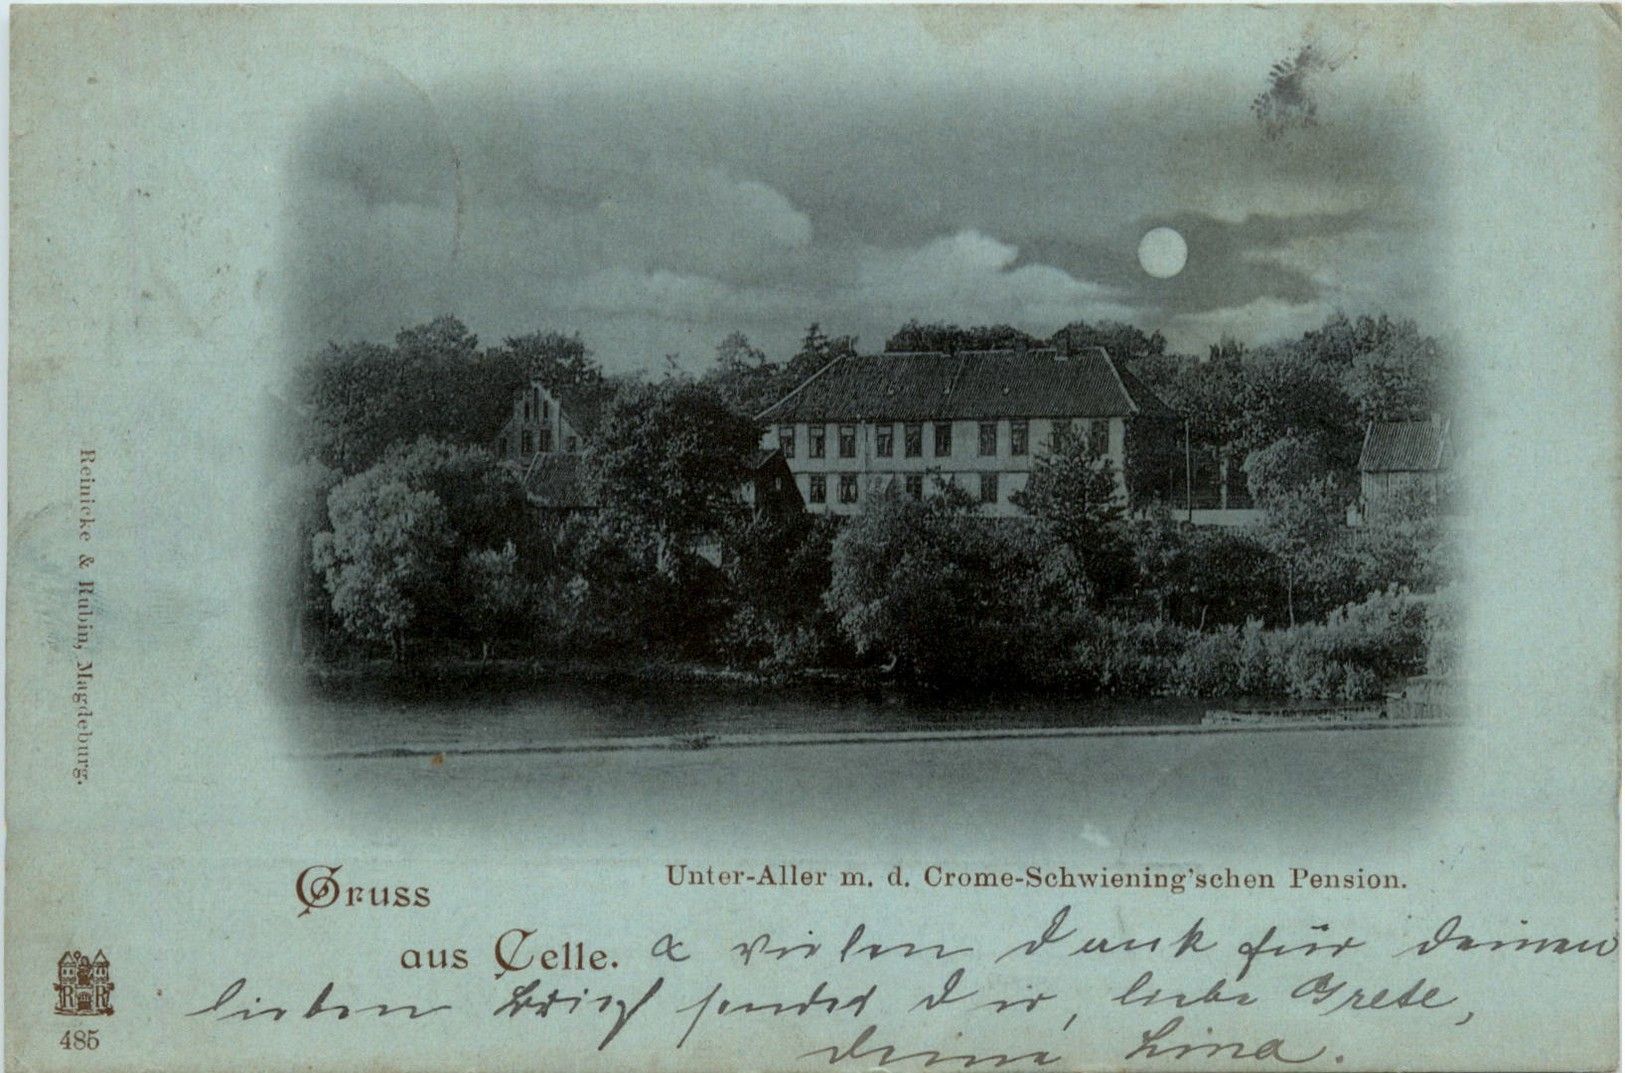 Reinicke & Rubin, Magdeburg.
Gruss
Unter-Aller m. d. Crome-Schwiening'schen Pension.
aus Celle. & vielen Dank für deinen
lieben Brief sendet Dir, liebe Grete,
deine Lina.
R R
485